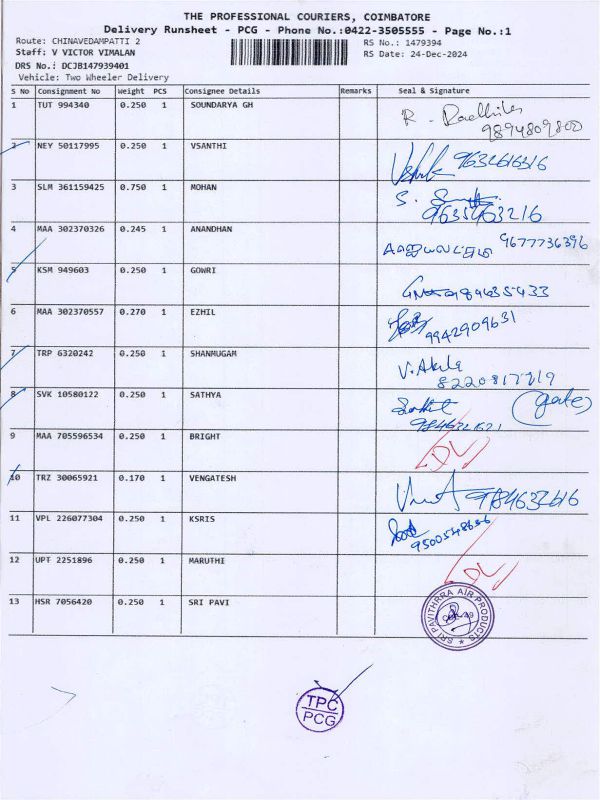 THE PROFESSIONAL COURIERS, COIMBATORE
Delivery Runsheet - PCG - Phone No.:0422-3505555 - Page No.:1
Route: CHINAVEDAMPATTI 2 RS No.: 1479394
Staff: V VICTOR VIMALAN RS Date: 24-Dec-2024
DRS No.: DCJB147939401
Vehicle: Two Wheeler Delivery
S No Consignment No Weight PCS Consignee Details Remarks Seal & Signature
1 TUT 994340 0.250 1 SOUNDARYA GH R -
2 NEY 50117995 0.250 1 VSANTHI
3 SLM 361159425 0.750 1 MOHAN S.
9635463216
4 MAA 302370326 0.245 1 ANANDHAN 9677736396
5 KSM 949603 0.250 1 GOWRI
6 MAA 302370557 0.270 1 EZHIL
9942909631
7 TRP 6320242 0.250 1 SHANMUGAM V. Akila
8 SVK 10580122 0.250 1 SATHYA (gate)
9 MAA 705596534 0.250 1 BRIGHT DL
10 TRZ 30065921 0.170 1 VENGATESH
11 VPL 226077304 0.250 1 KSRIS
12 UPT 2251896 0.250 1 MARUTHI DL
13 HSR 7056420 0.250 1 SRI PAVI SRI PAVITHRRA AIR PRODUCTS
TPC
PCG